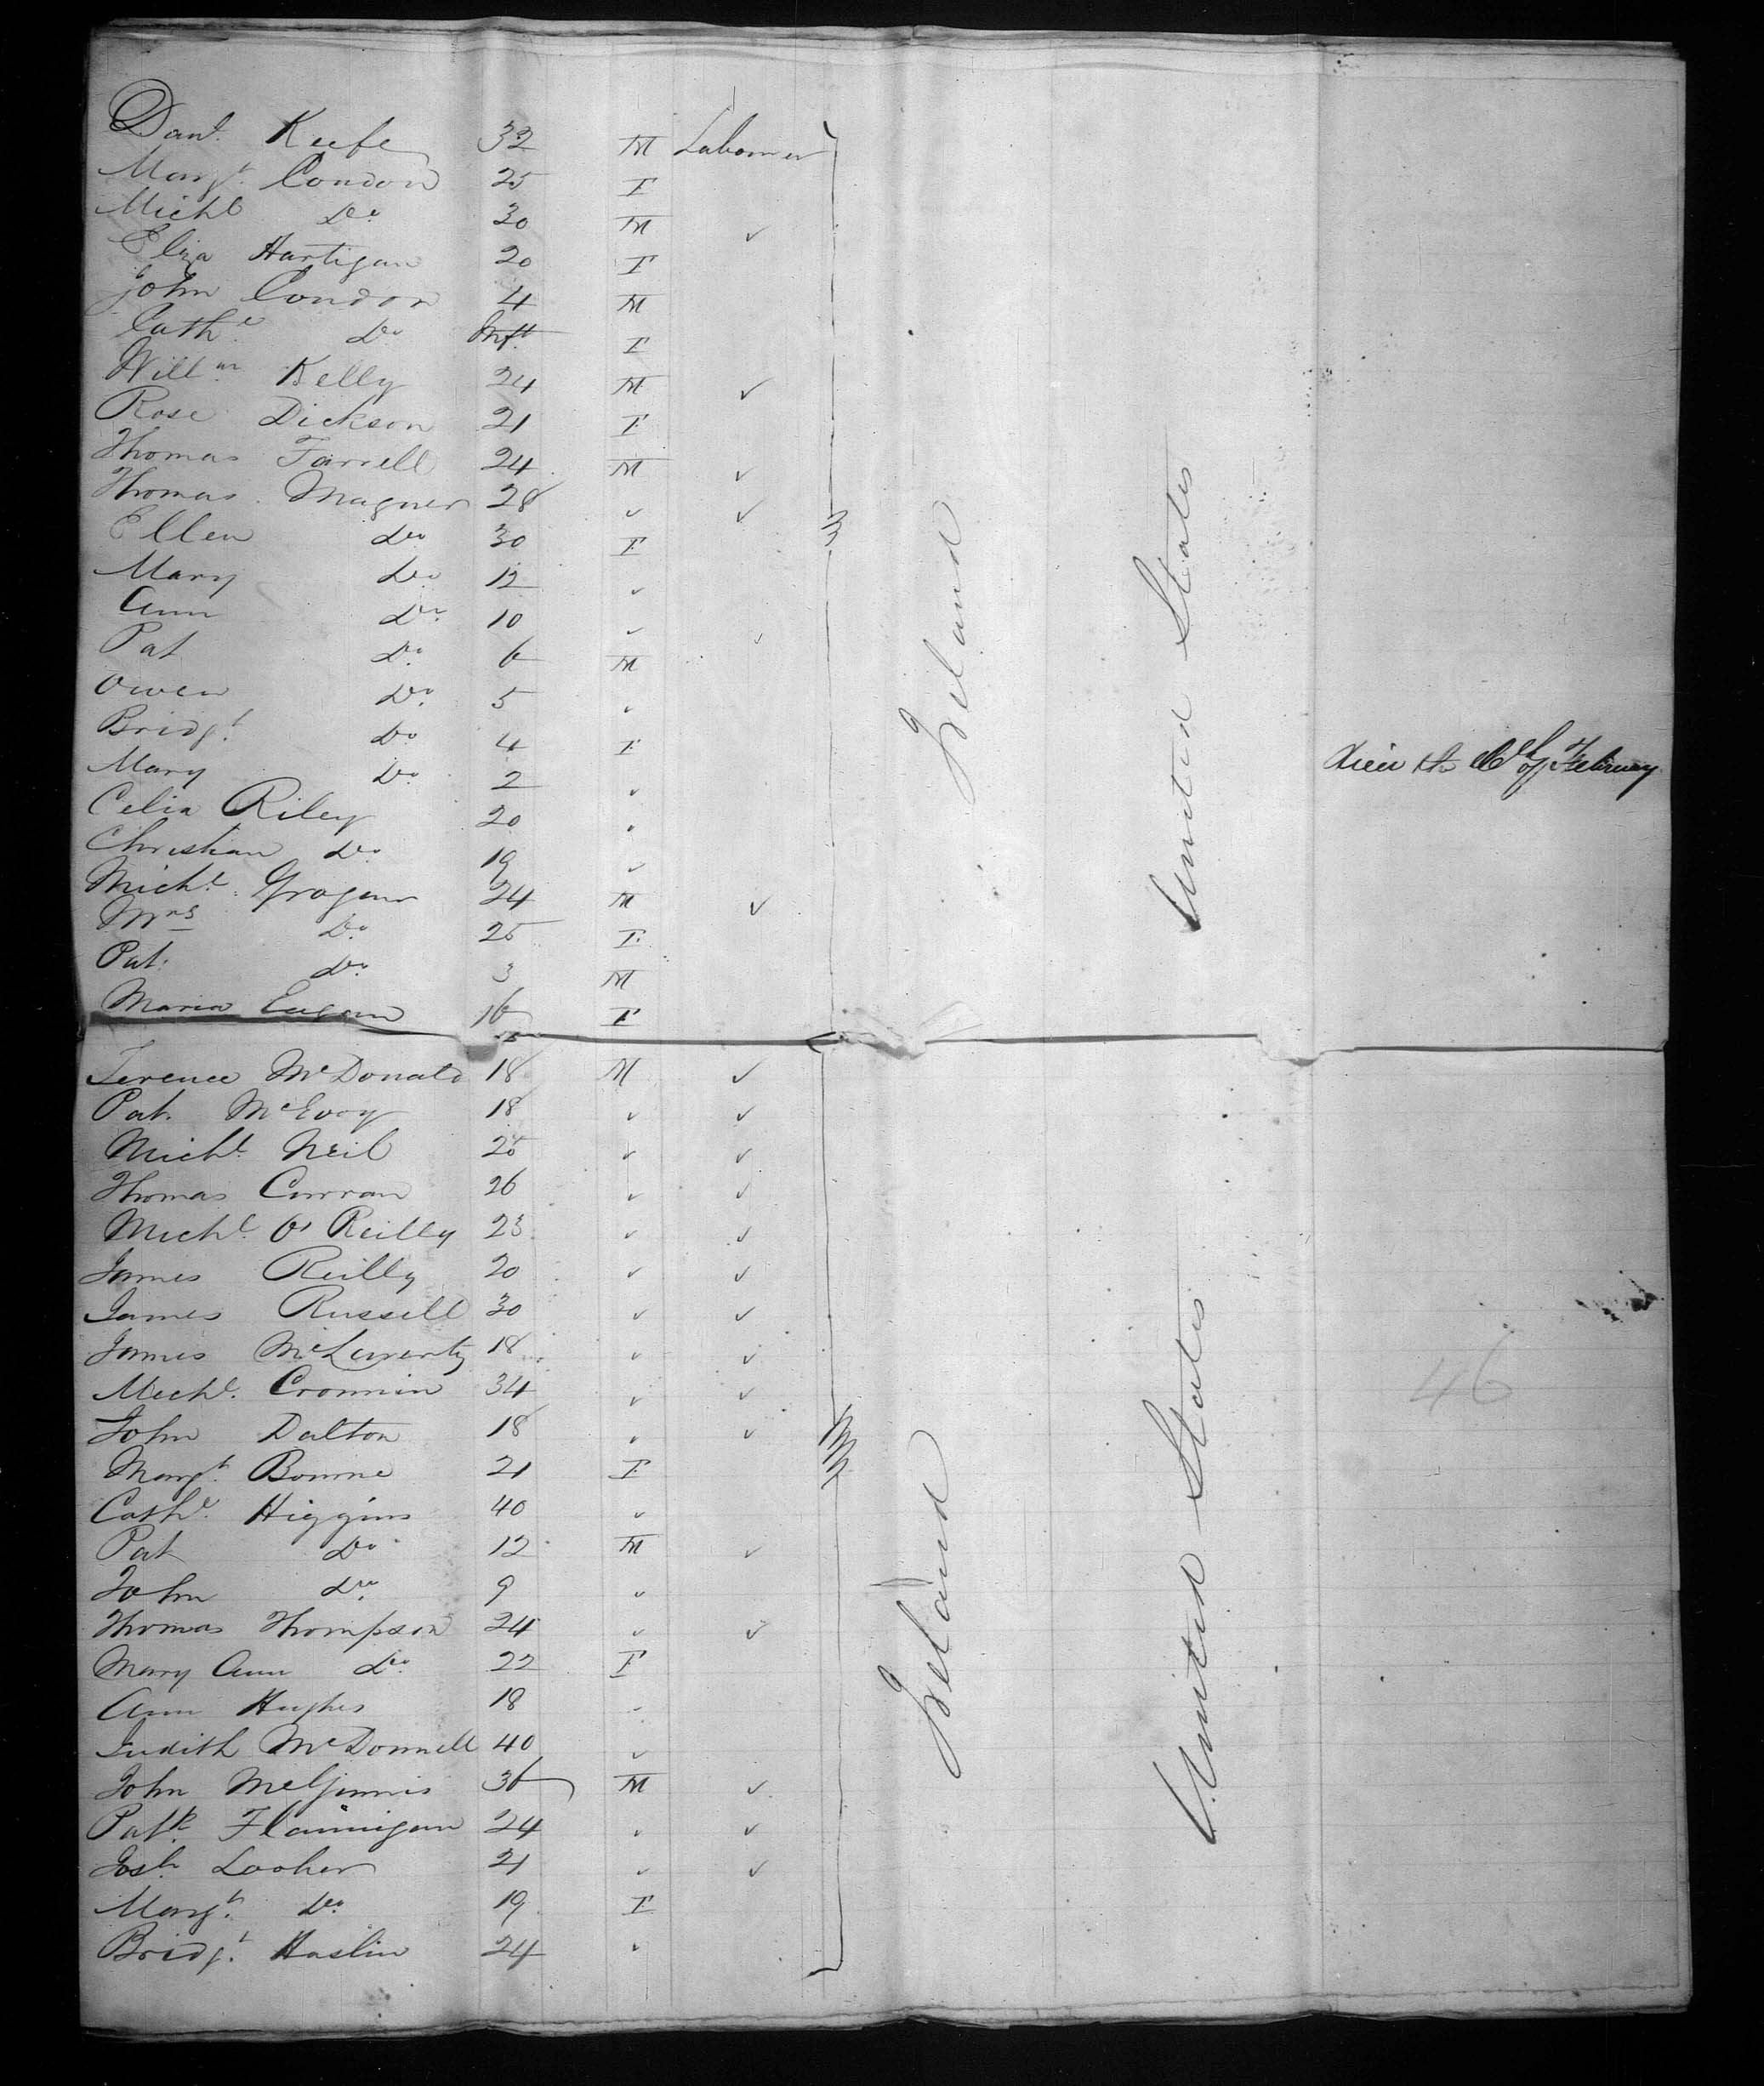 Danl. Keefe 32 M Labourer
Margt. Condon 25 F
Michl Do 30 M ✓
Eliza Hartigan 20 F
John Condon 4 M
Cathe. Do Inft. F
Willm Kelly 24 M ✓
Rose Dickson 21 F
Thomas Farrell 24 M ✓
Thomas Magner 28 ✓ ✓
Ellen Do 30 F
Mary Do 12 ✓
Ann Do 10 ✓ ✓
Pat Do 6 M
Owen Do 5 ✓
Bridgt. Do 4 F
Mary Do 2 ✓ of February
Celia Riley 20 ✓
Christian Do 19 ✓
Michl. Grogan 24 M ✓
Mrs Do 25 F
Pat. Do 3 M
Maria Eagan 16 F
Ireland
United States
Terence McDonald 18 M ✓
Pat. McEvoy 18 ✓ ✓
Michl. Neil 25 ✓ ✓
Thomas Curran 26 ✓ ✓
Michl. O'Reilly 23 ✓ ✓
James Reilly 20 ✓ ✓
James Russell 30 ✓ ✓
James McLaverty 18 ✓ ✓
Michl. Cronnin 34 ✓ ✓
John Dalton 18 ✓ ✓
Margt. Bourne 21 F
Cathe. Higgins 40 ✓
Pat Do 12 M ✓
John Do 9 ✓
Thomas Thompson 24 ✓ ✓
Mary Ann Do 22 F
Ann Hughes 18 ✓
Judith McDonnell 40 ✓
John McGinnis 36 M ✓
Patk. Flannigan 24 ✓ ✓
Josh. Looher 21 ✓ ✓
Margt. Do 19 F
Bridgt. Haslin 24 ✓
Ireland
United States
46